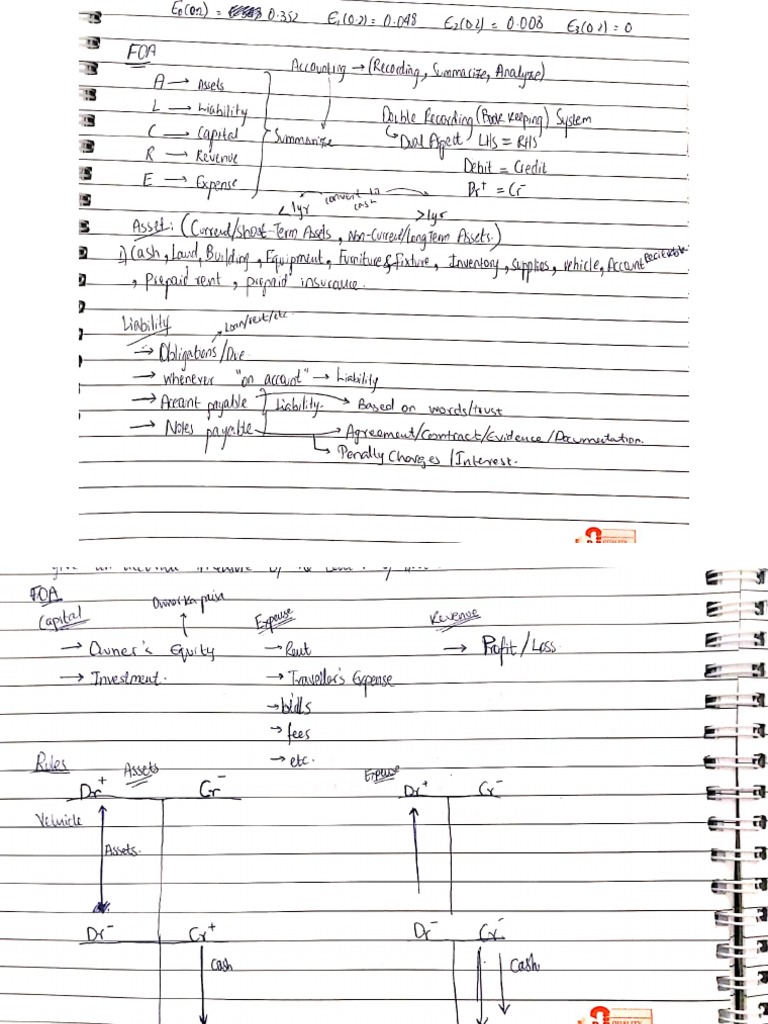 E₀(0.2) = 0.352 E₁(0.2) = 0.048 E₂(0.2) = 0.008 E₃(0.2) = 0
FOA
Accounting → (Recording, Summarize, Analyze)
A → Assets
L → Liability
C → Capital
R → Revenue
E → Expense
Summarize
Double Recording (Book keeping) System
Dual Aspect LHS = RHS
Debit = Credit
Dr⁺ = Cr⁻
<1yr convert in cash >1yr
Asset: (Current/Short-Term Assets, Non-Current/Long Term Assets.)
i) Cash, Land, Building, Equipment, Furniture & Fixture, Inventory, Supplies, vehicle, Account Receivable
, Prepaid rent, prepaid insurance.
Liability
Loan/rent/etc.
→ Obligations/Due
→ whenever "on account" → Liability
→ Account payable Liability. → Based on words/trust
→ Notes payable → Agreement/Contract/Evidence/Documentation.
→ Penalty Charges / Interest.
FOA
Capital
Owner ka paisa
→ Owner's Equity
→ Investment.
Expense
→ Rent
→ Traveller's Expense
→ bills
→ fees
→ etc.
Revenue
→ Profit/Loss.
Rules
Assets
Dr⁺ Cr⁻
Vehicle
Assets.
Dr⁻ Cr⁺
Cash
Expense
Dr⁺ Cr⁻
Dr⁻ Cr⁻
Cash